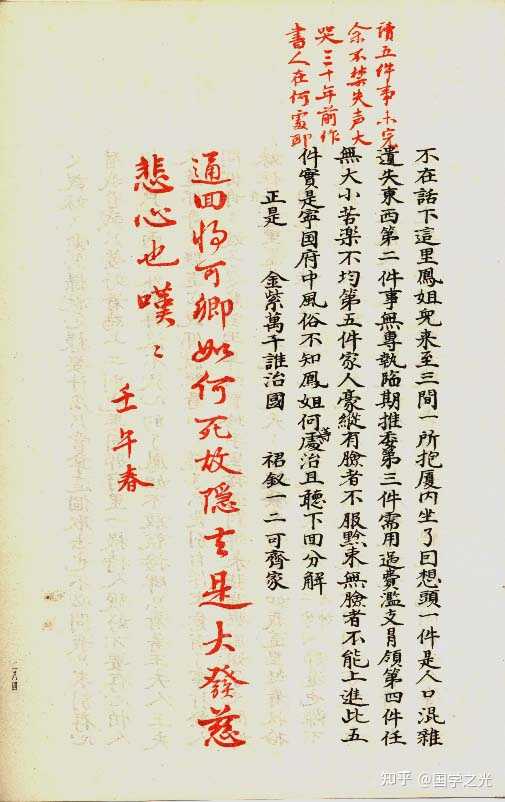 讀五件事未完
余不禁失声大
哭三十年前作
書人在何處耶
不在話下這里鳳姐兒来至三間一所抱厦内坐了因想頭一件是人口混雜
遺失東西第二件事無專執臨期推委第三件需用過費濫支冐領第四件任
無大小苦楽不均第五件家人豪縱有臉者不服黔束無臉者不能上進此五
件實是寧国府中風俗不知鳳姐何等處治且聽下回分解
正是 金紫萬千誰治國 裙釵一二可齊家
通回將可卿如何死故隱去是大發慈
悲心也嘆〻 壬午春
二八四
知乎 @国学之光